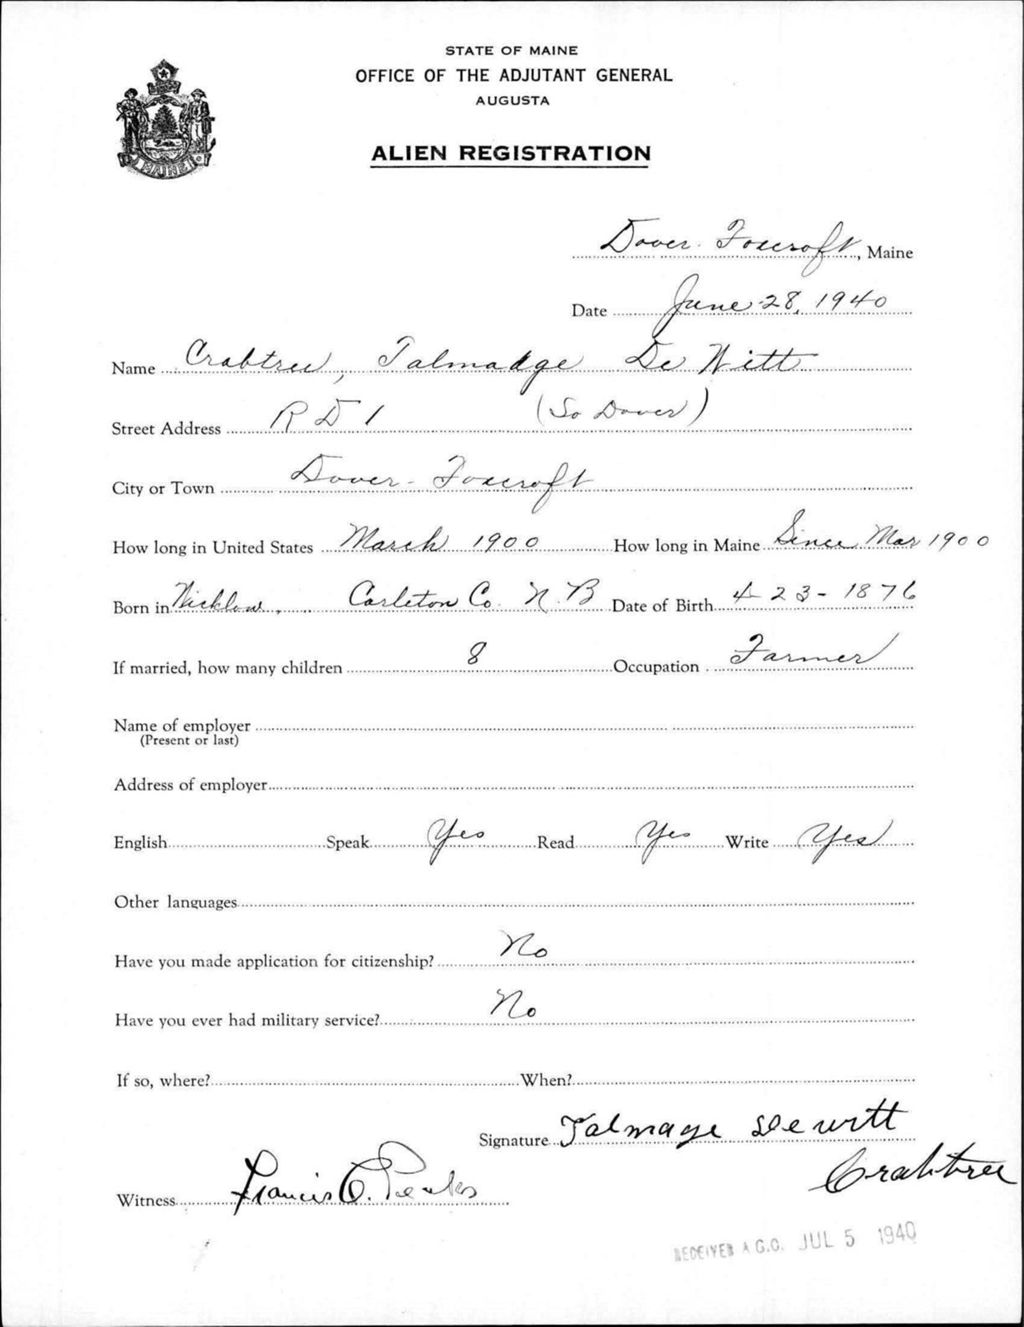 STATE OF MAINE
OFFICE OF THE ADJUTANT GENERAL
AUGUSTA
ALIEN REGISTRATION
MAINE
Dover-Foxcroft, Maine
Date June 28, 1940
Name Crabtree, Talmadge De Witt
Street Address R D 1 (So Dover)
City or Town Dover-Foxcroft
How long in United States March 1900 How long in Maine Since Mar 1900
Born in Wicklow, Carleton Co. N.B Date of Birth 4-23-1876
If married, how many children 8 Occupation Farmer
Name of employer
(Present or last)
Address of employer
English Speak Yes Read Yes Write Yes
Other languages
Have you made application for citizenship? No
Have you ever had military service? No
If so, where? When?
Signature Talmage Dewitt
Crabtree
Witness Francis C. Peaks
RECEIVED A.G.O. JUL 5 1940